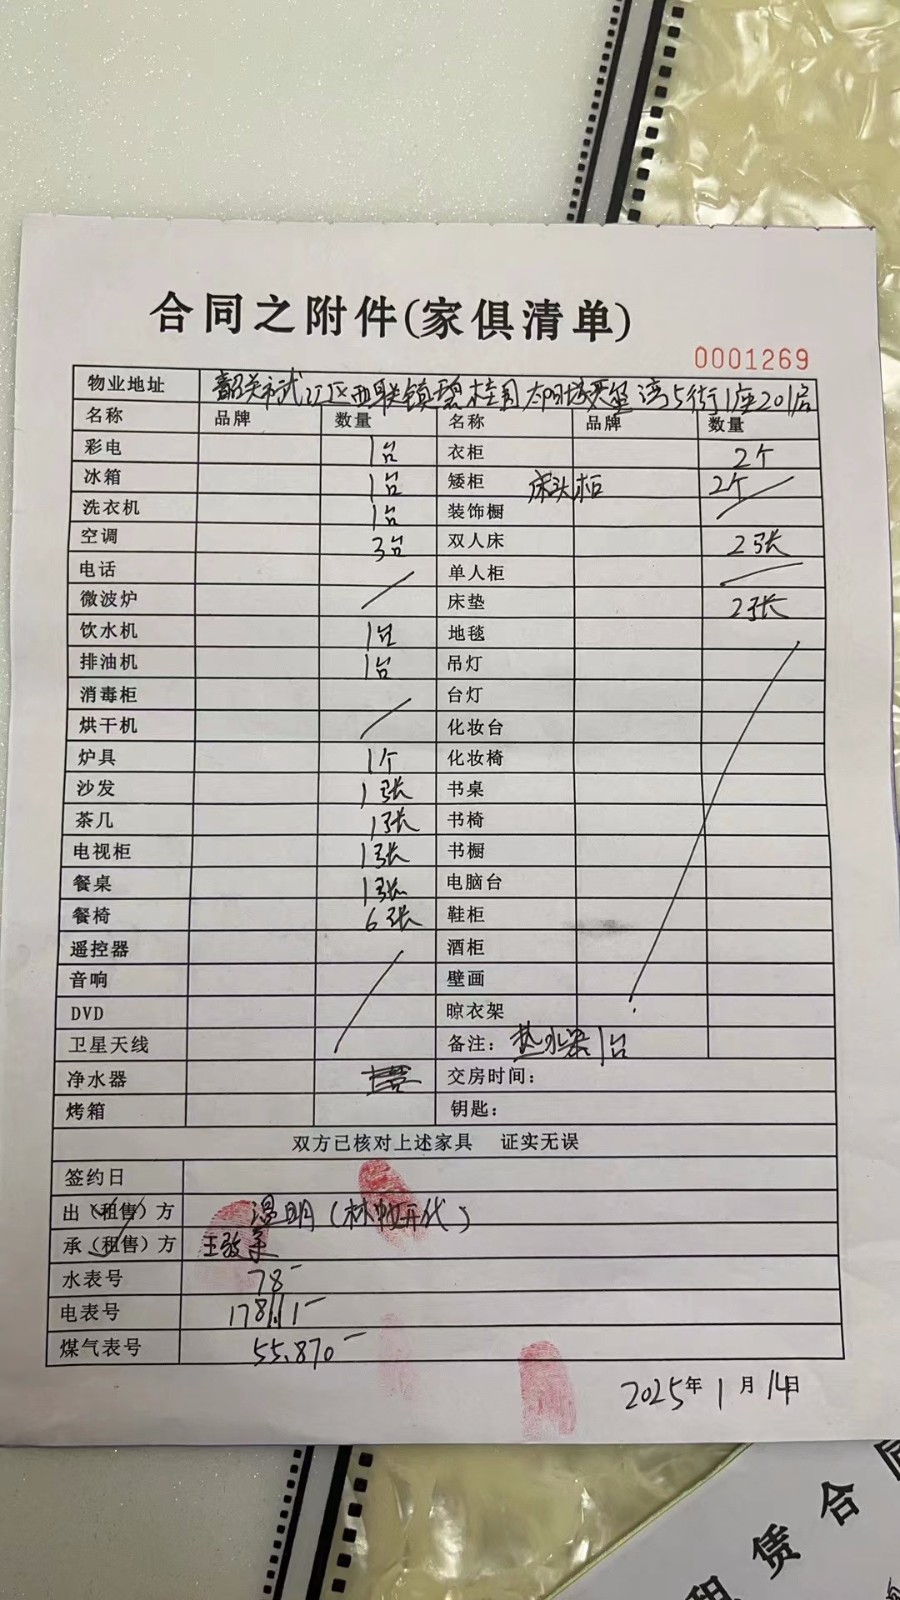 合同之附件(家俱清单)
0001269
物业地址 韶关市武江区西联镇碧桂园太阳城荣玺湾5街1座201房
名称 品牌 数量 名称 品牌 数量
彩电 1台 衣柜 2个
冰箱 1台 矮柜 床头柜 2个
洗衣机 1台 装饰橱
空调 3台 双人床 2张
电话 单人柜
微波炉 床垫 2张
饮水机 1台 地毯
排油机 1台 吊灯
消毒柜 台灯
烘干机 化妆台
炉具 1个 化妆椅
沙发 1张 书桌
茶几 1张 书椅
电视柜 1张 书橱
餐桌 1张 电脑台
餐椅 6张 鞋柜
遥控器 酒柜
音响 壁画
DVD 晾衣架
卫星天线 备注：热水器1台
净水器 交房时间：
烤箱 钥匙：
双方已核对上述家具 证实无误
签约日
出（租售）方 温明（林牧开代）
承（租售）方 王敬柔
水表号 78
电表号
煤气表号 55.870
2025年1月14日
租赁合同